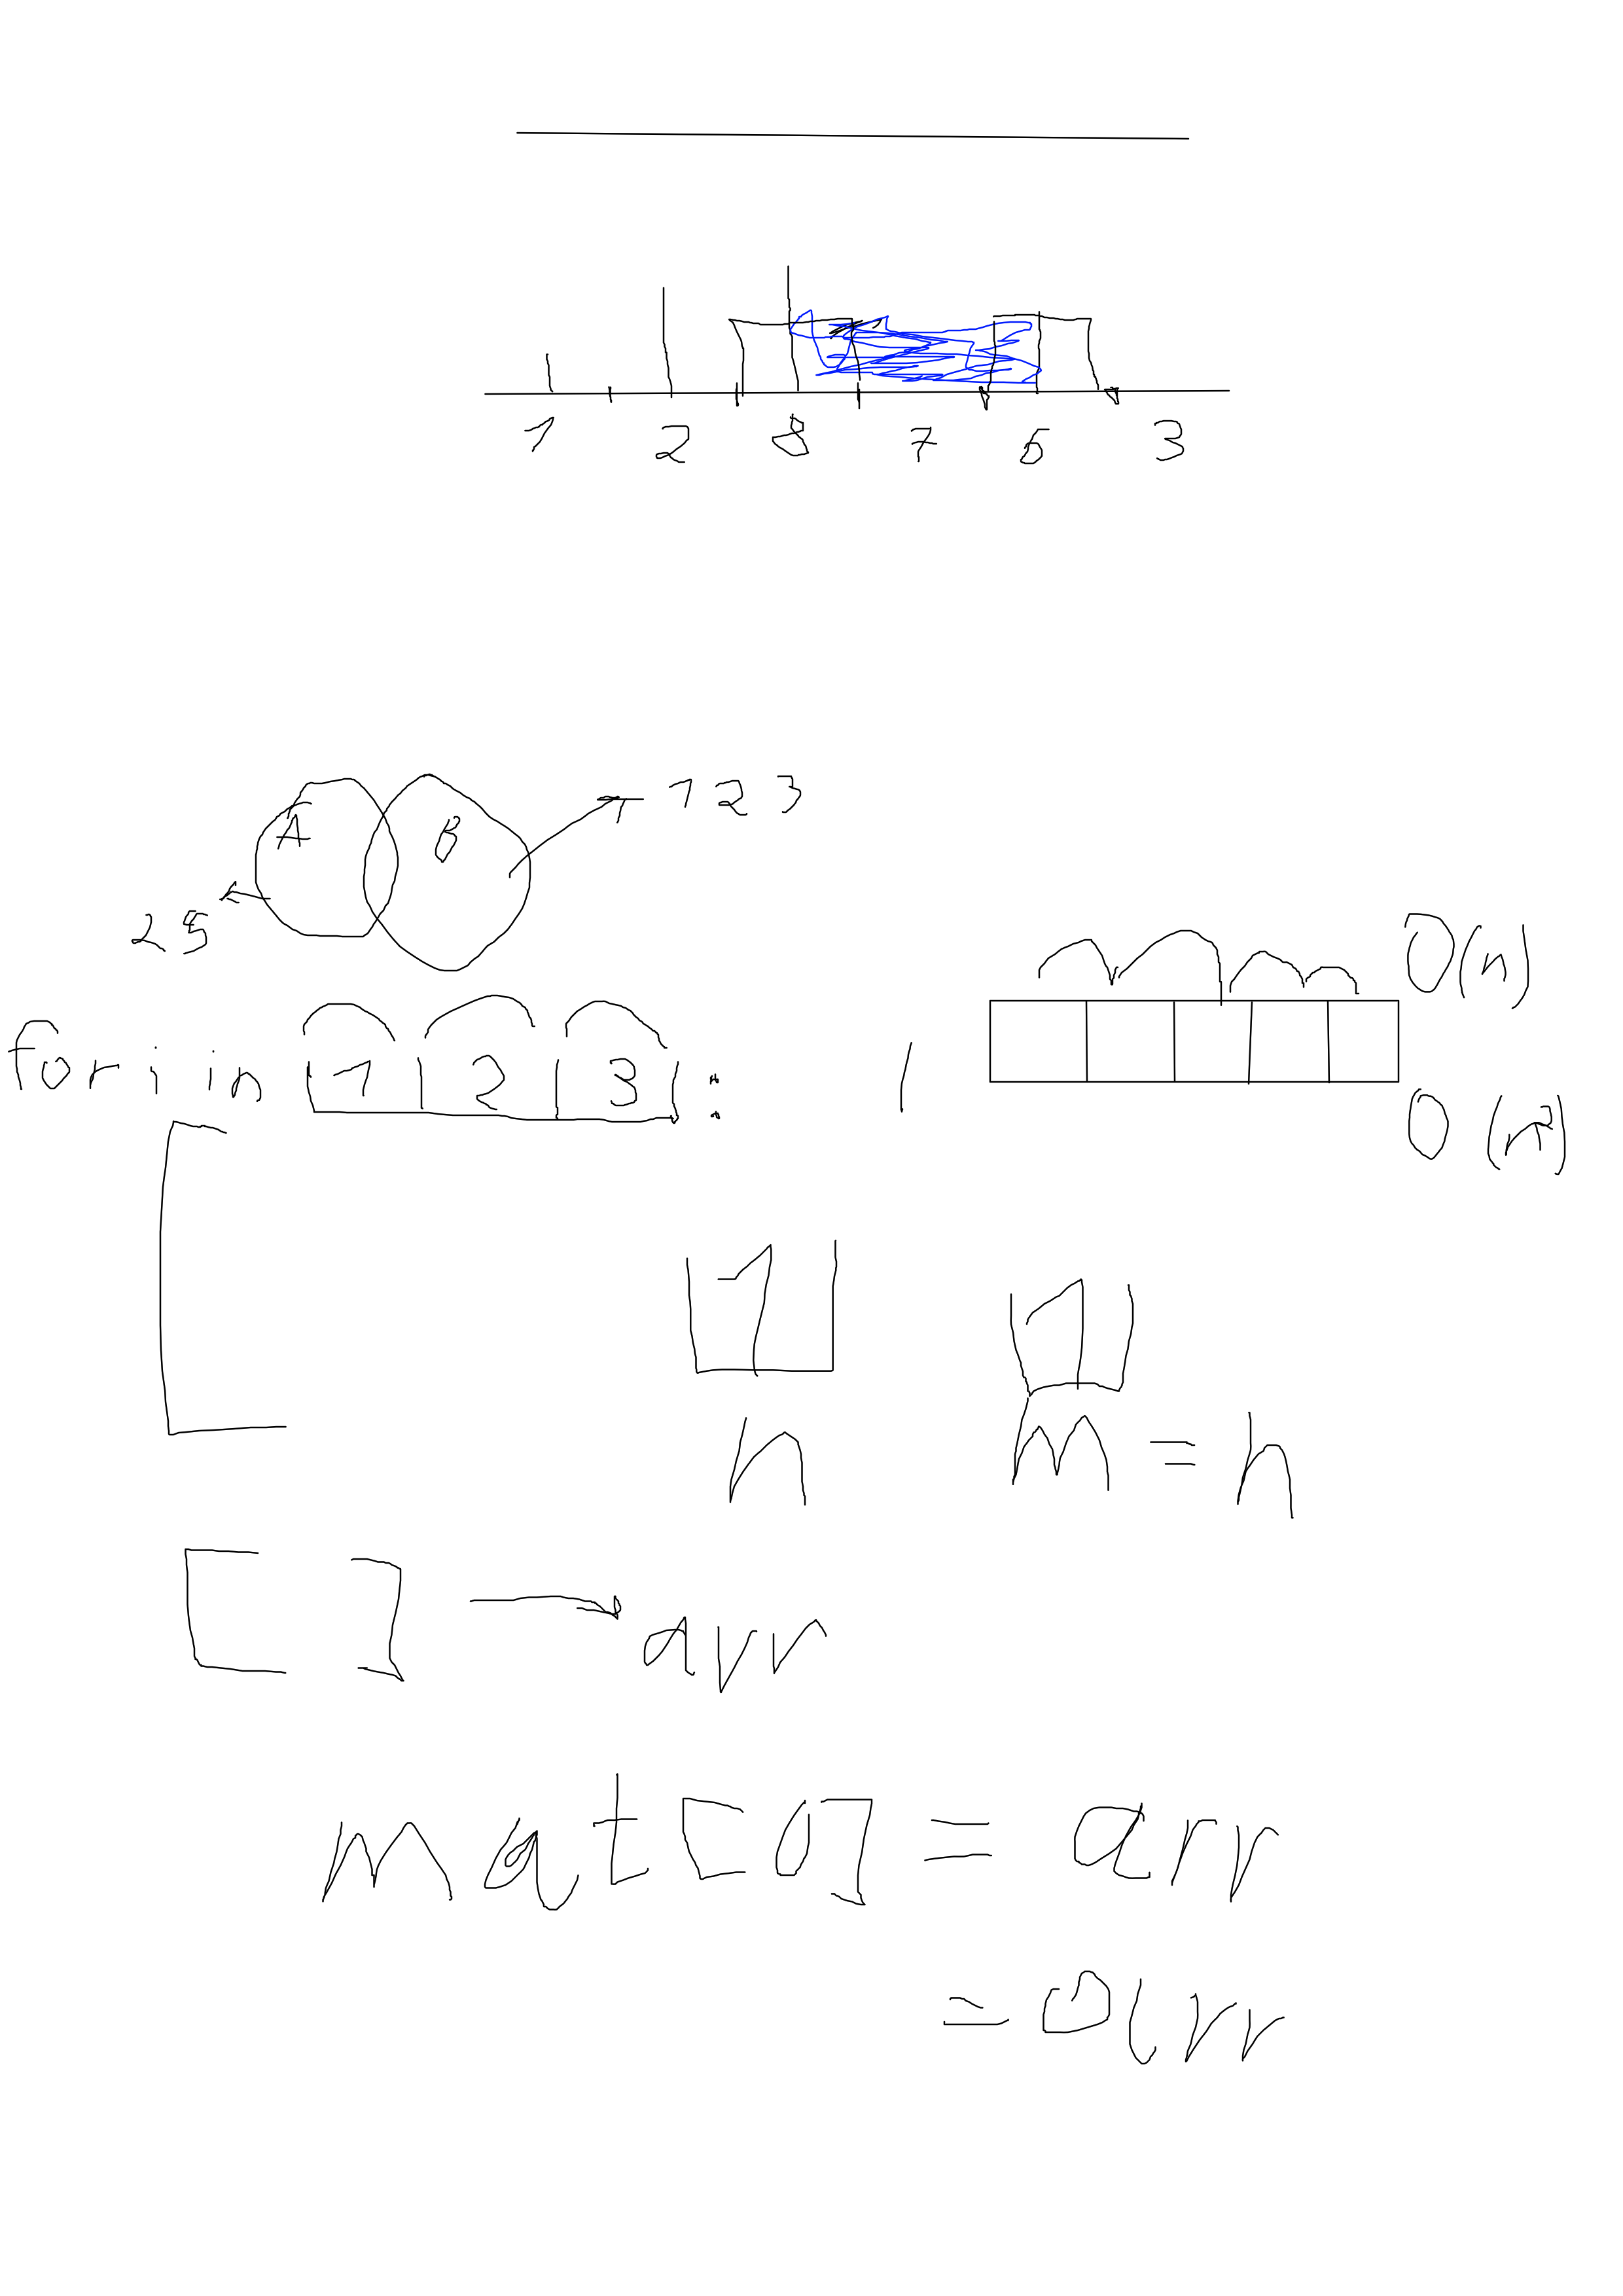 1 2 8 7 6 3
A B 1 2 3
2 5
O(n)
for i in 1 2 3 :
O(n²)
1 1
n m = n
[ ] → arr
mat[0] = arr
= arr